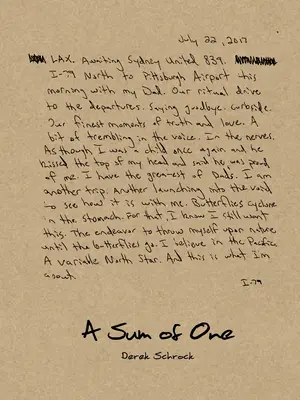 July 22, 2017
LAX. Awaiting Sydney United 839.
I-79 North to Pittsburgh Airport this
morning with my Dad. Our ritual drive
to the departures. Saying goodbye. curbside.
Our finest moments of truth and love. A
bit of trembling in the voice. In the nerves.
As though I was a child once again and he
kissed the top of my head and said he was proud
of me. I have the greatest of Dads. I am
another trip. Another launching into the void
to see how it is with me. Butterflies cyclone
in the stomach. For that I know I still want
this. The endeavor to throw myself upon nature
until the butterflies go. I believe in the Pacific
A variable North Star. And this is what I'm
about.
I-79
A Sum of One
Derek Schrock